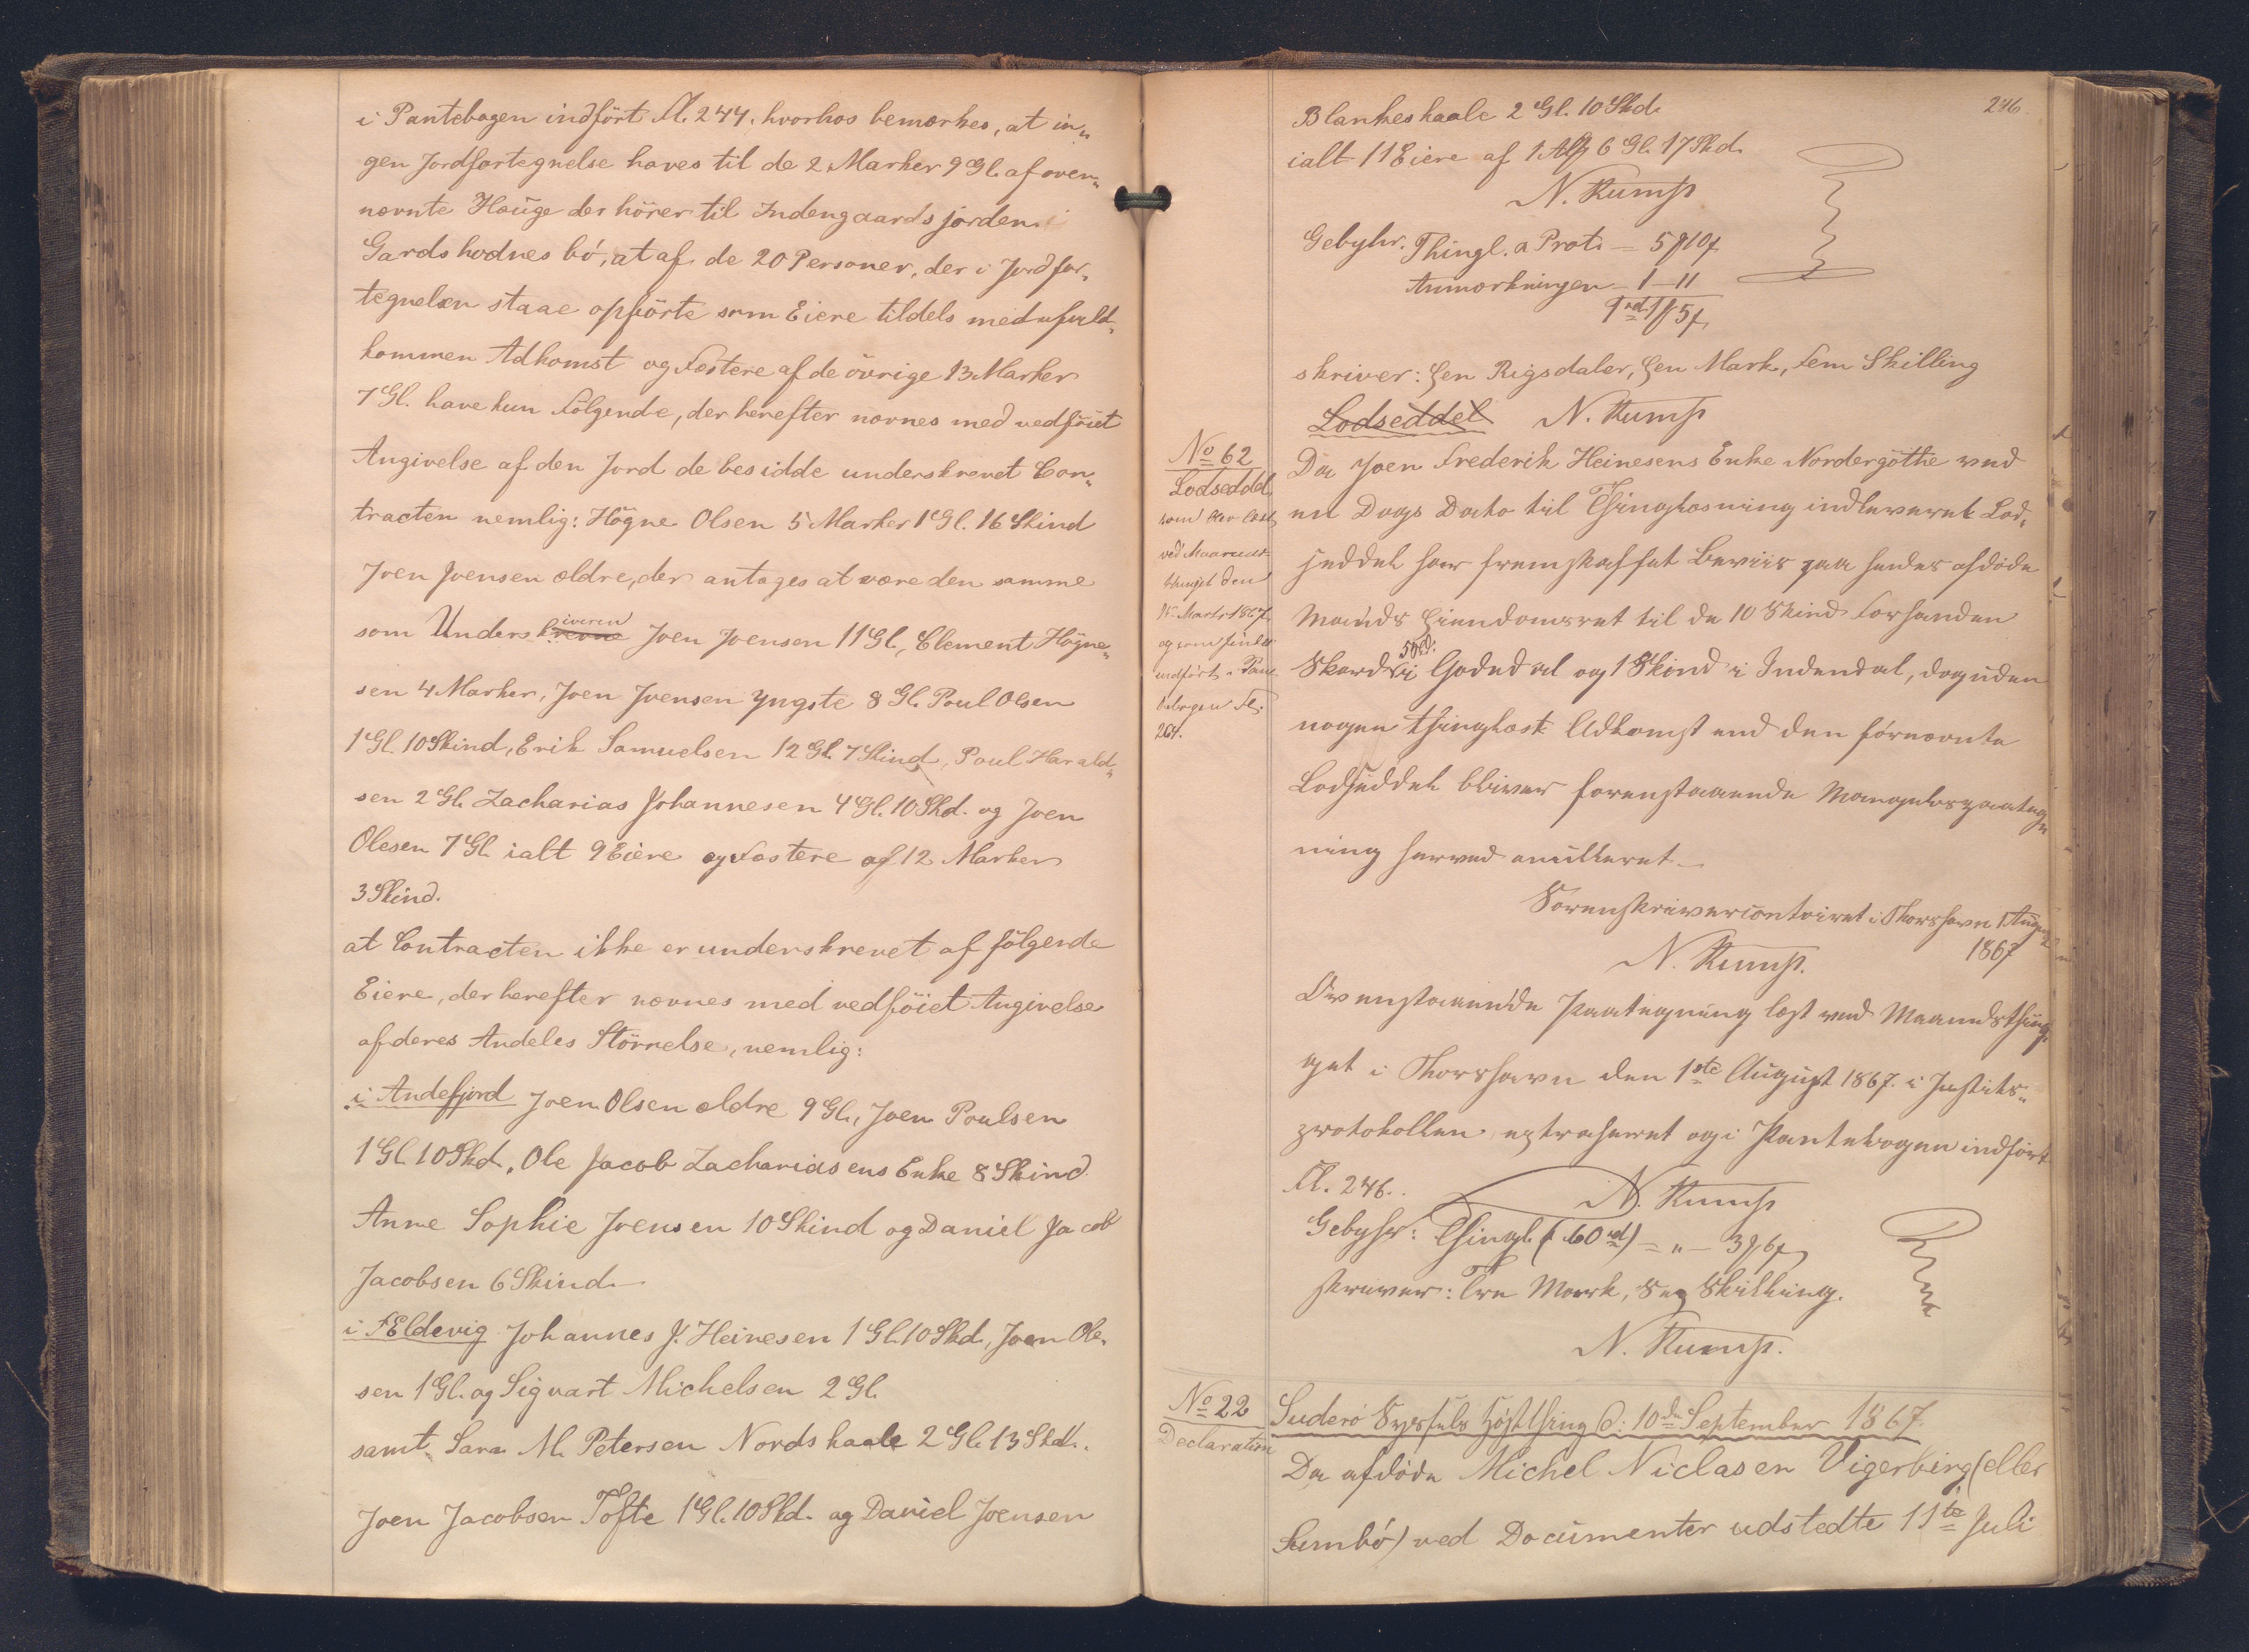 i Pantebogen indført Fl. 244. hvorhos bemærkes, at in„
gen Jordfortegnelse haves til de 2 Marker 9 Gl. af oven„
nævnte Hauge der hörer til Indengaardsjorden i
Gardshodnes bö, at af de 20 Personer, der i Jordfor„
tegnelsen staae opförte som Eiere tildels med ufuld„
kommen Adkomst og Fæstere af de övrige 13 Marker
7 Gl. have kun Fölgende, der herefter nævnes med vedföiet
Angivelse af den Jord de besidde underskrevet Con„
tracten nemlig: Högne Olsen 5 Marker 1 Gl. 16 Skind
Joen Joensen ældre, der antages at være den samme
som Underskiveren Joen Joensen 11 Gl., Clement Högne„
sen 4 Marker, Joen Joensen yngste 8 Gl. Poul Olsen
1 Gl. 10 Skind, Erik Samuelsen 12 Gl. 7 Skind, Poul Harald„
sen 2 Gl. Zacharias Johannesen 4 Gl. 10 Skd. og Joen
Olesen 7 Gl ialt 9 Eiere og Fæstere af 12 Marker
3 Skind.
at Contracten ikke er underskrevet af fölgende
Eiere, der herefter nævnes med vedföiet Angivelse
af deres Andeles Störrelse, nemlig:
i Andefjord Joen Olsen ældre 9 Gl., Joen Poulsen
1 Gl. 10 Skd., Ole Jacob Zachariasens Enke 8 Skind
Anne Sophie Joensen 10 Skind og Daniel Jacob
Jacobsen 6 Skind
i Eldevig Johannes J. Heinesen 1 Gl. 10 Skd, Joen Ole„
sen 1 Gl. og Sigvart Michelsen 2 Gl.
samt Sara M. Petersen Nordskaale 2 Gl. 13 Skd.
Joen Jacobsen Tofte 1 Gl. 10 Skd. og Daniel Joensen
246
Blankeskaale 2 Gl. 10 Skd.
ialt 11 Eiere af 1 Mk 6 Gl. 17 Skd.
N. Rump
Gebyhr. Thingl. a Prot. — 5 ß 10 f
Anmærkningen — 1 — 11
1 rd. 1 ß 5 f
skriver: Een Rigsdaler, Een Mark, Fem Skilling
Lodseddel N. Rump
No 62
Lodseddel
som er læst
ved Maaneds
thinget den
Marts 1867
og som findes
indfört i Pan
tebogen Fl.
264.
Da Joen Frederik Heinesens Enke Nordergöthe ved
en Dags Dato til Thinglæsning indleveret Lod„
seddel har fremskaffet Beviis paa hendes afdöde
Mands Eiendomsret til de 10 Skind Forhanden
Skard 5 Skd. i Godedal og 1 Skind i Indendal, dog uden
nogen thinglæst Adkomst end den förnævnte
Lodseddel bliver forenstaaende Mangelspaateg„
ning herved anulleret —
Sorenskrivercontoiret i Thorshavn 1 August
1867
N. Rump.
Ovenstaaende Paategning læst ved Maanedsthin„
get i Thorshavn den 1ste August 1867. i Justits„
protokollen extraheret og i Pantebogen indfört
Fl. 246. N. Rump
Gebyhr: Thingl. (60 rd) = „ — 3 ß 6 f
skriver: Tre Mark, Sex Skilling.
N. Rump.
No 22
Declaration
Suderö Syssels Höstthing d: 10de September 1867.
Da afdöde Michel Niclasen Vigerbirg (eller
Sumbö) ved Documenter udstedte 11te Juli